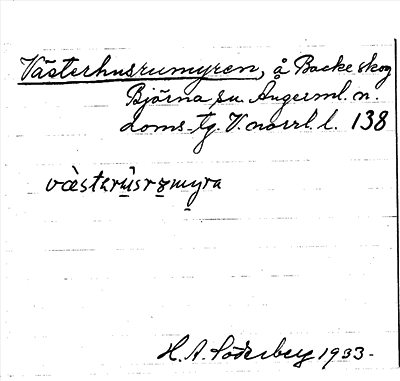 Västerhusrumyren, å Backe skog
Björna sn. Ångerml. n.
doms.-tg. V.norrl. l. 138
væ̀sterùsrømyra
H. A. Söderberg 1933-